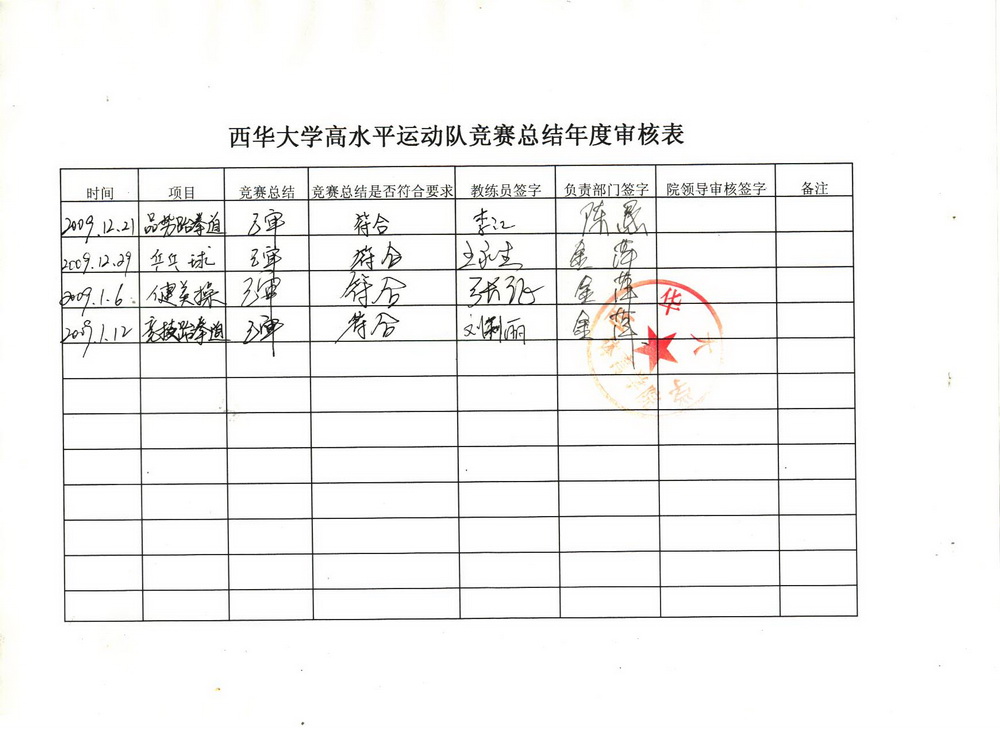 西华大学高水平运动队竞赛总结年度审核表
时间 项目 竞赛总结 竞赛总结是否符合要求 教练员签字 负责部门签字 院领导审核签字 备注
2009.12.21 品势跆拳道 符合 李江 陈愚
2009.12.29 乒乓球 符合 王永杰 金萍
2009.1.6 健美操 符合 金萍
2009.1.12 竞技跆拳道 符合 金萍
华大学